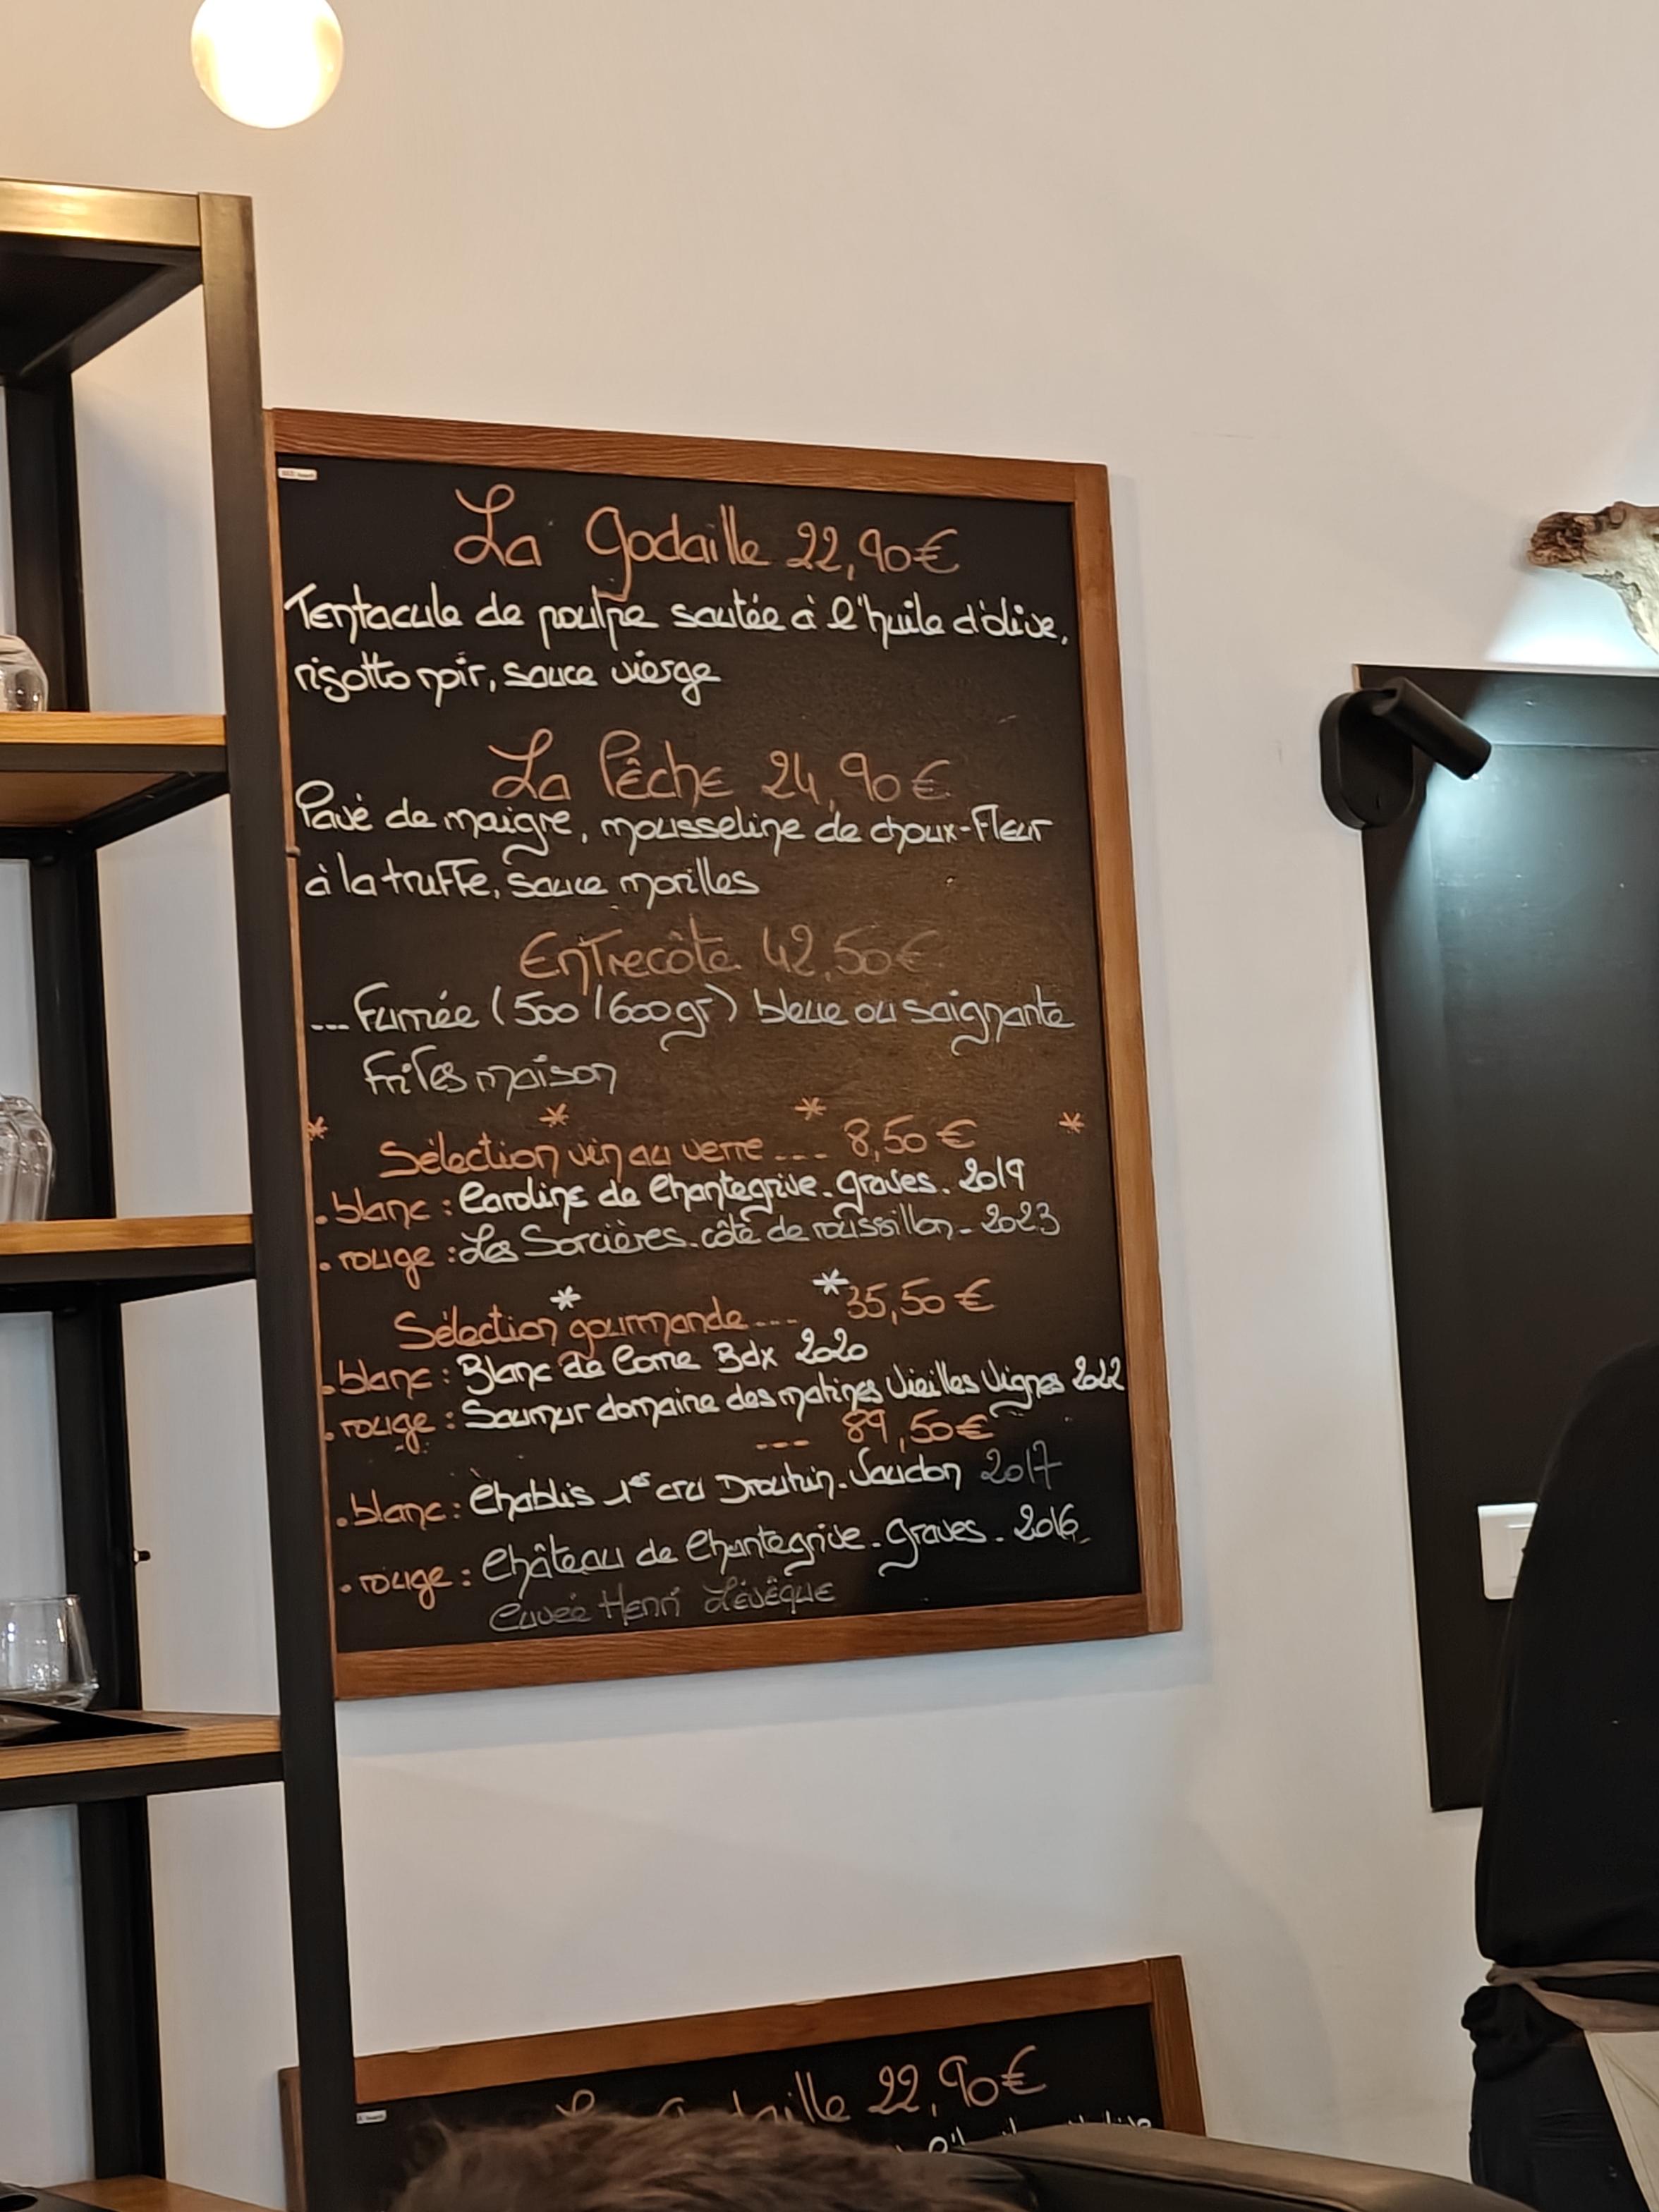 La Godaille 22,90€
Tentacule de poulpe sautée à l'huile d'olive,
risotto noir, sauce vierge
La Pêche 24,90€
Pavé de maigre, mousseline de choux-Fleur
à la truffe, sauce morilles
Entrecôte 42,50€
... Fumée (500/600gr) bleue ou saignante
Frites maison
* * * *
Sélection vin au verre .... 8,50€
. blanc : Caroline de Chantegrive. Graves. 2019
. rouge : Les Sorcières. côté de roussillon - 2023
* *
Sélection gourmande .... 35,50€
. blanc : Blanc de Lorre Bdx 2020
. rouge : Saumur domaine des matines Vieilles Vignes 2022
... 89,50€
. blanc : Chablis 1er cru Drouhin. Vaudon 2017
. rouge : Château de Chantegrive. Graves. 2016
Cuvée Henri Lévêque
La Godaille 22,90€